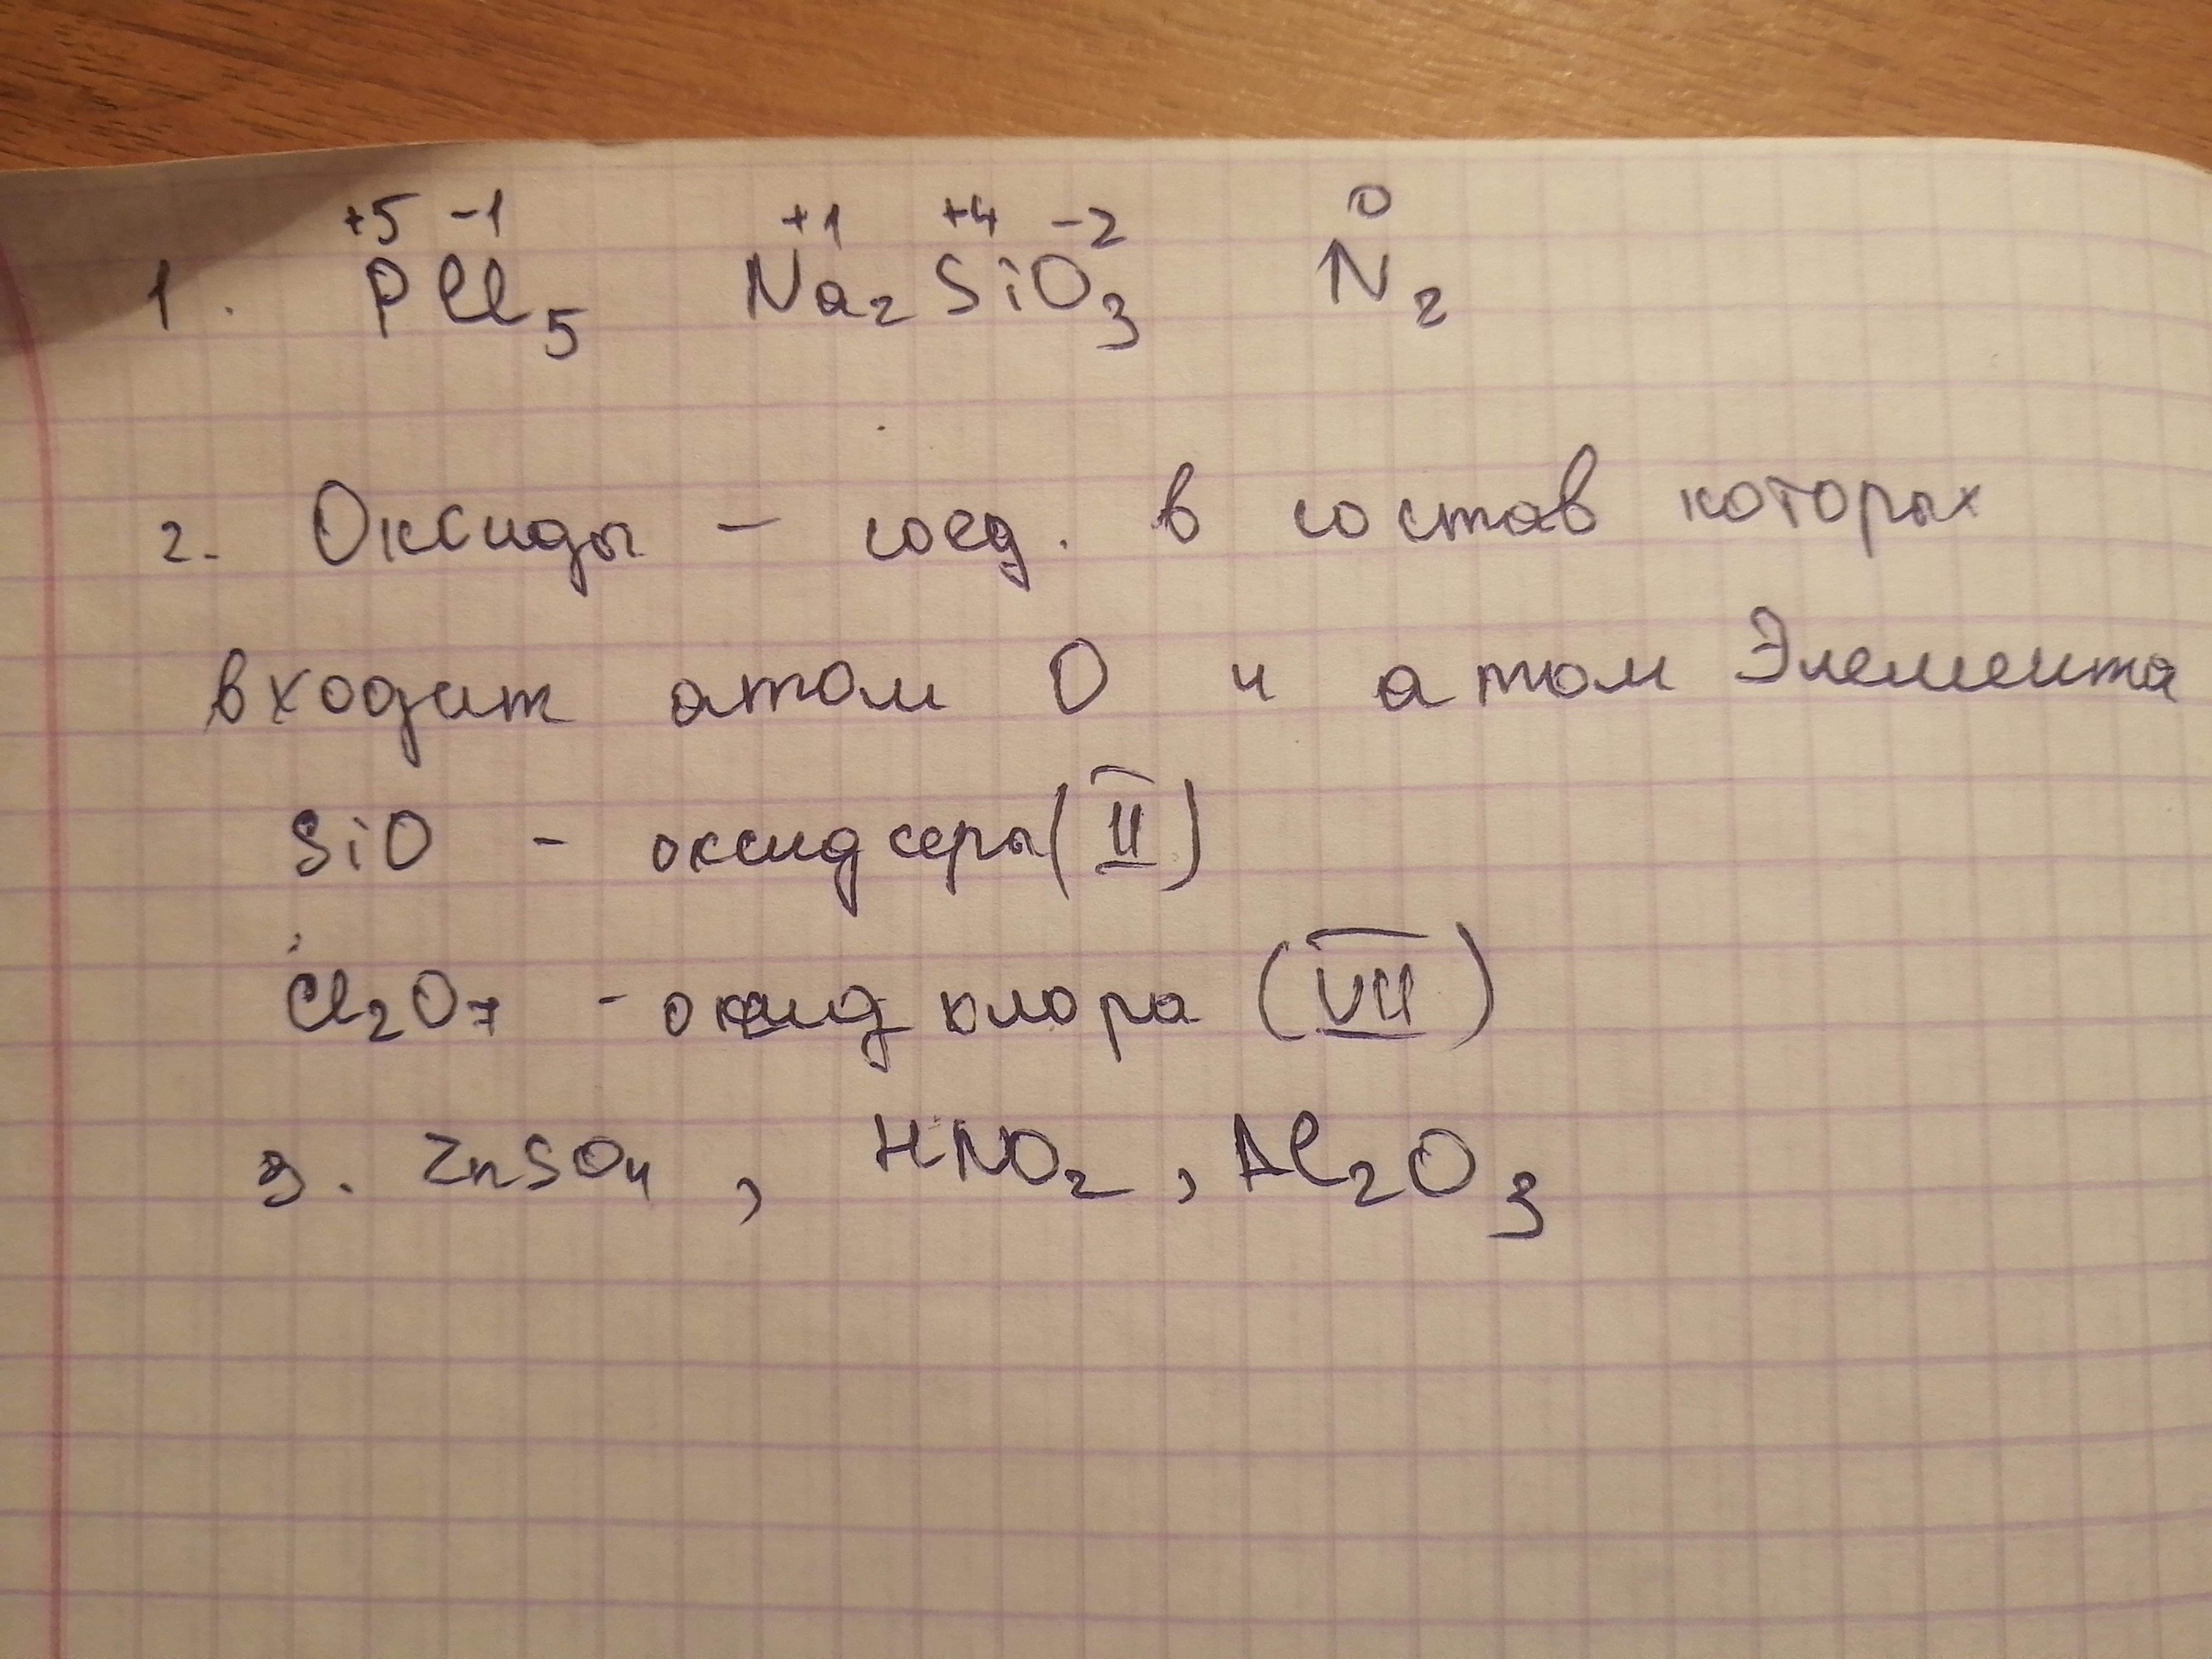 +5 -1 +1 +4 -2 0
1. PCl5 Na2SiO3 N2
2. Оксиды - соед. в состав которых
входит атом О и атом Элемента
SiO - оксид серы (II)
Cl2O7 - оксид хлора (VII)
3. ZnSO4, HNO2, Al2O3